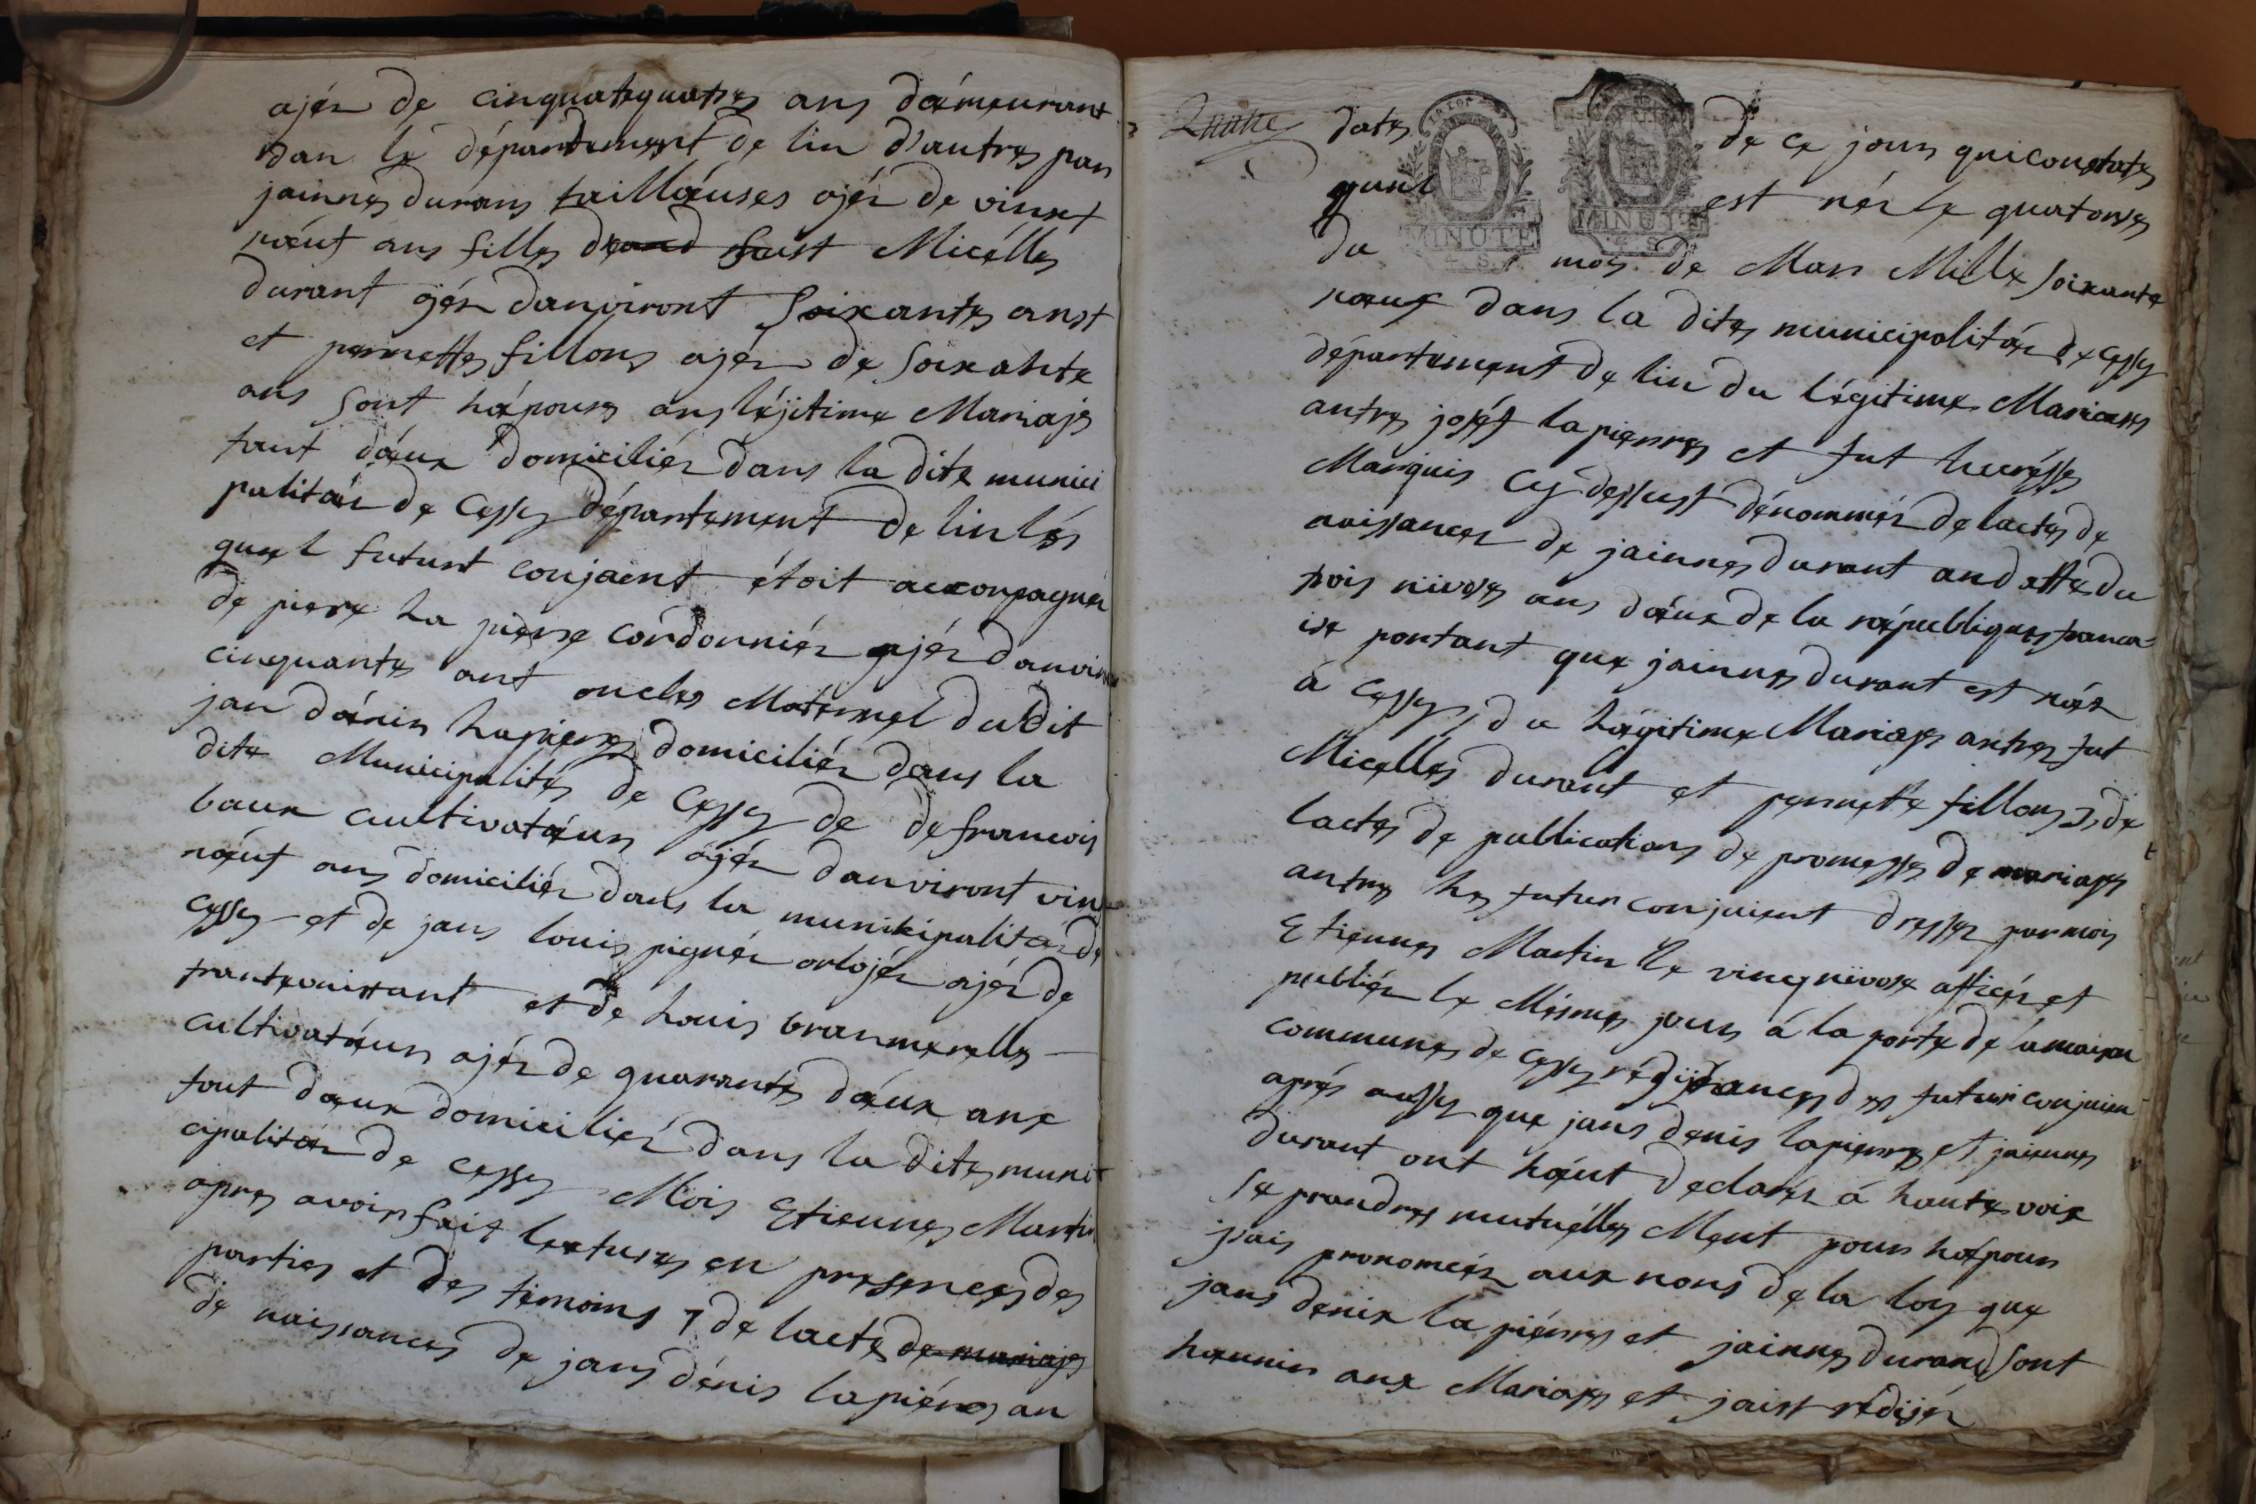 ajéz de cinquatequatres ans dámeurant
dan le départdement de lin d'autres par
jainnes durans tailláuses ajéz de vinxt
nœuf ans filles de fust Micélles
durant ajéz danviront soixantes anst
et pernettes fillons ajéz de soixante
ans sont hépouses ans léjitime Mariajes
tout dáux domiciliéz dans la dite munici
palitáz de Cessy département de lin lés
quel futurt conjaent étoit acconpagnéz
de piere La pierre cordonniéz ajéz danviront
cinquantes ant oncles Maternel dudit
jan dánis Lapierres domiciliéz dans la
dite Municipalités de Cessy de de francois
baux cultivatáurs ajéz danviront vint
nœuf ans domiciliéz dans la munisipalitáz de
cessy et de jans louis pignéz orlojéz ajéz de
et de Louis
cultivatáurs ajéz de quarantes dáux anx
tout dáux domiciliéz dans la dites muni
cipalitáz de cessy Mois Etiennes Martin
apres avoir fait lextures en presences des
parties et des témoins 7 de lactes de mariajes
de naissances de jans dénis lapiéres an
dates de ce jour qui constates
quel est néz le quatorses
du mois de Mars Mille soixante
nœuf dans la dites municipalitáz de cessy
département de lin du légitimes Mariages
antres joséf lapierres et fut
Marquis Cy dessust dénomméz de lactes de
naissances de jainnes durant an datte du
trois nivoses ans dáux de la républiques franca-
ise portant que jainnes durant est náéz
à Cessy, du Légitime Mariages antres fut
Micelles durant et pernete fillons, de
lactes de publications de promesses de mariages
antres les futur conjaient dresses par mois
Etiennes Martin le vincq nivose afficéz et
publiéz le Mésmes jours á la porte de la maison
communes de Cessy des futur conjaien
aprés aussy que jans denis lapierres et jainnes
durant ont háut declaréz á hautes voix
se prandres mutuélles Ment pour hépoux
jais prononcéz aux nons de la loy que
jans denis la piérres et jainnes durand sont
haunis anx Mariages et jaist rédijéz